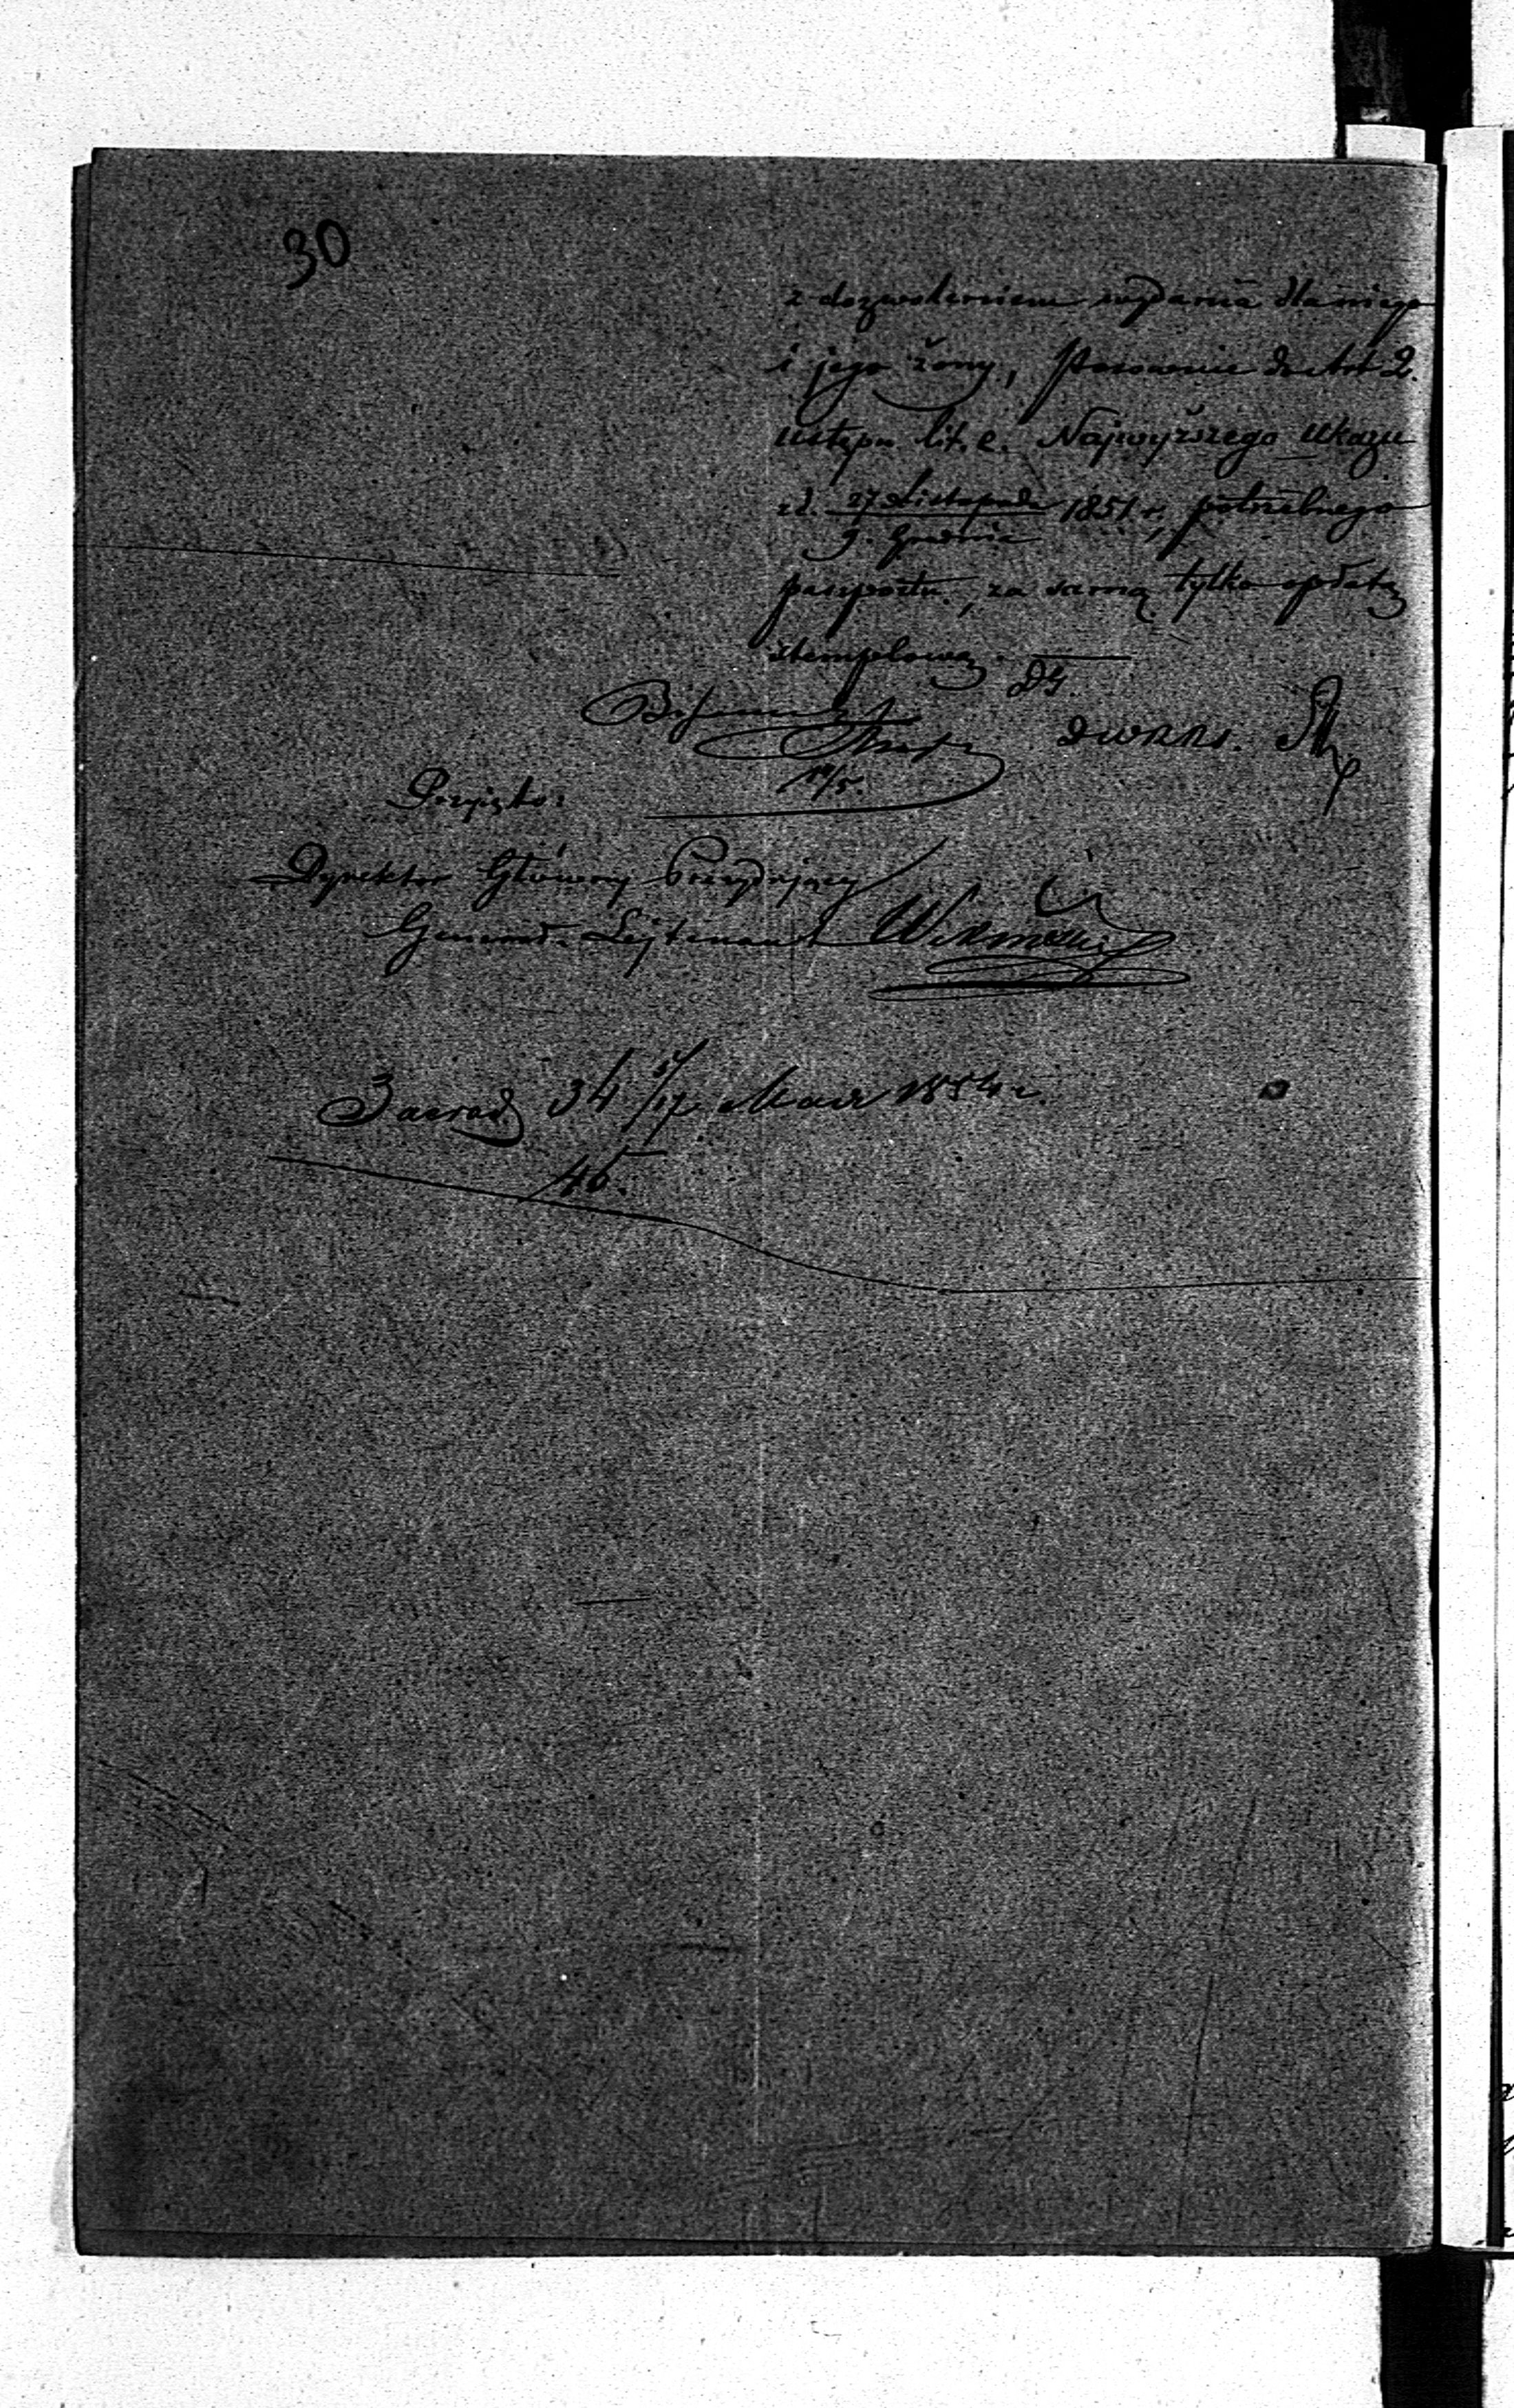 30
z dozwoleniem wydania dla niego
i jego żony, stosownie do Art 2.
ustępu lit. e. Najwyższego Ukazu
z d. 27 Listopada 1851 r., potrzebnego
9. Grudnia
paszportu, za samą tylko opłatą
stemplową.
19/5.
Przyięto:
Dyrektor Główny Prezydujący
Generał-Lejtenant
34 5/17 Maia 1854 r.
46.